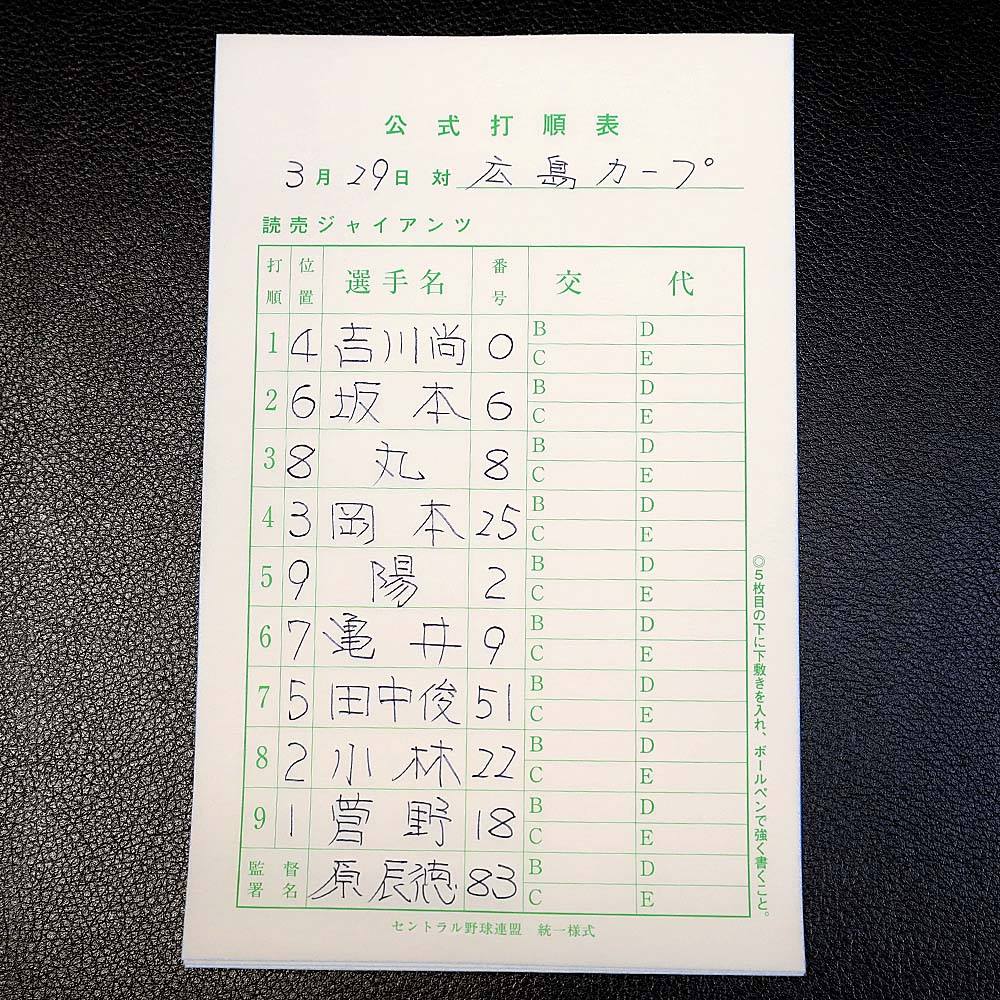 公式打順表
3月29日 対 広島カープ
読売ジャイアンツ
打順 位置 選手名 番号 交代
1 4 吉川尚 0 B D
C E
2 6 坂本 6 B D
C E
3 8 丸 8 B D
C E
4 3 岡本 25 B D
C E
5 9 陽 2 B D
C E
6 7 亀井 9 B D
C E
7 5 田中俊 51 B D
C E
8 2 小林 22 B D
C E
9 1 菅野 18 B D
C E
監督署名 原辰徳 83 B D
C E
セントラル野球連盟 統一様式
◎5枚目の下に下敷きを入れ、ボールペンで強く書くこと。